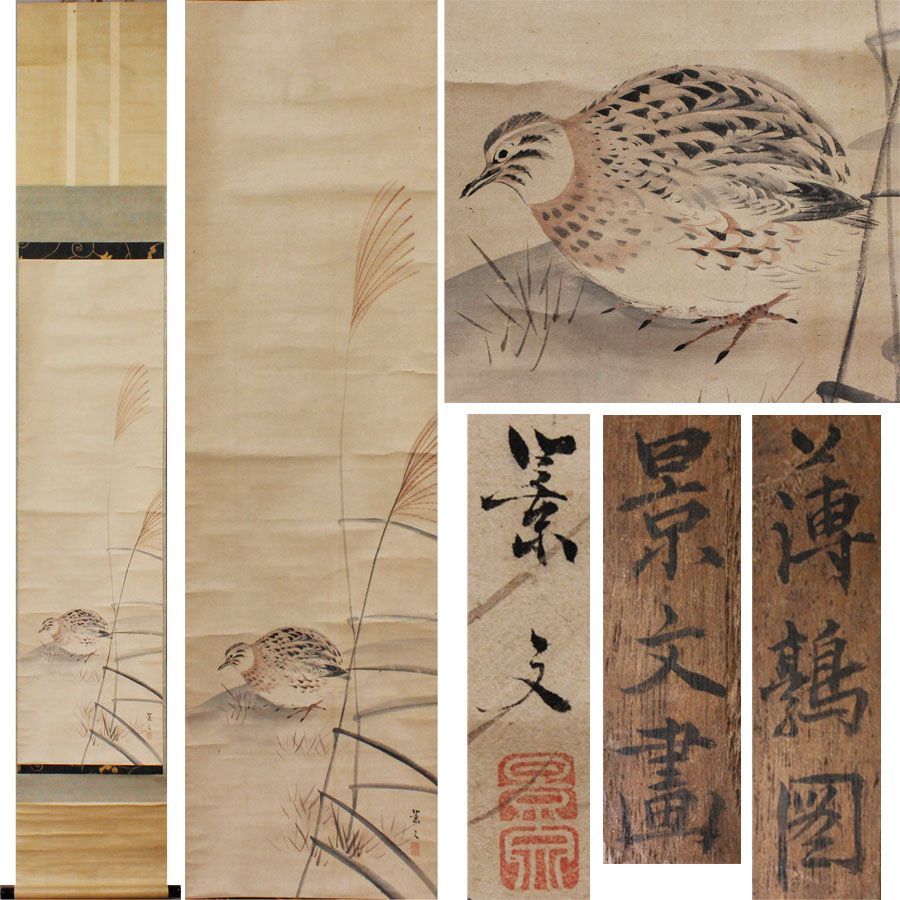 景文
景文畫
薄鶉図